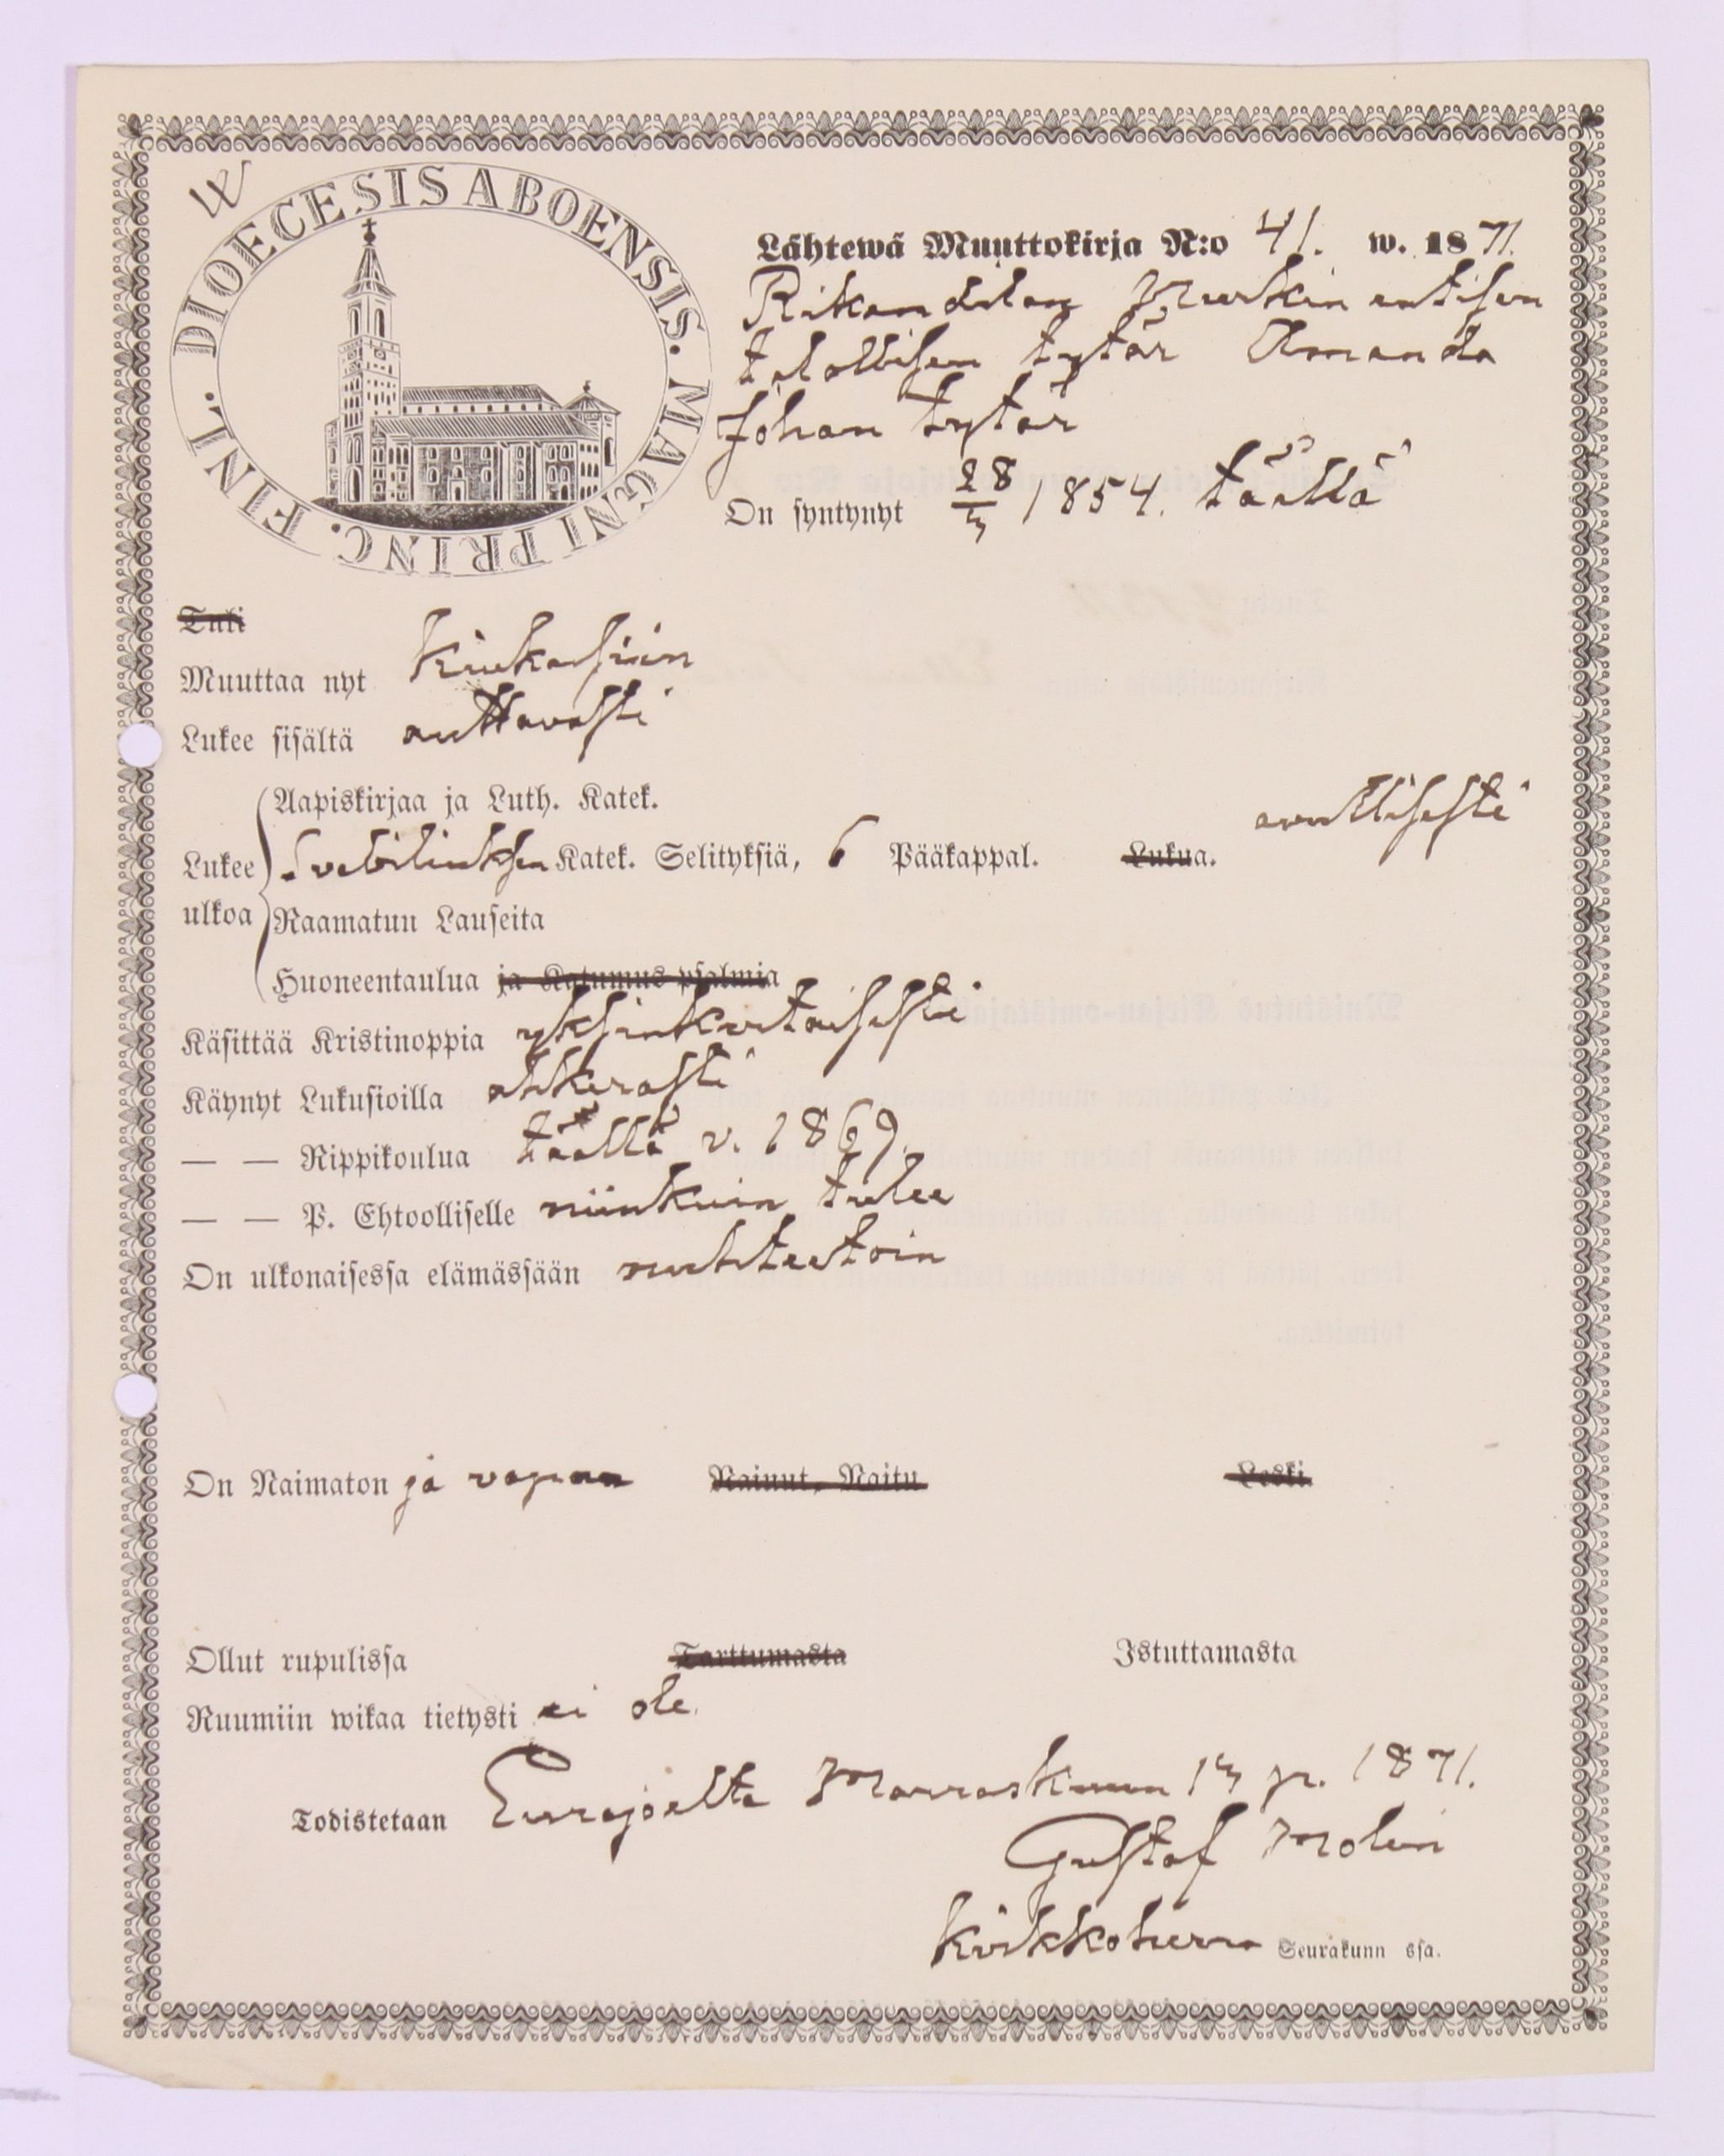 W
DIOECESIS ABOENSIS. MAGNI PRINC. FINL.
Lähtewä Muuttokirja N:o 41. w. 1871.
Rikandilan Murkin entisen
talollisen tytär Amanda
Johan tytär
On syntynyt 28/3 1854. täällä
Tuli
Muuttaa nyt Kiukaisiin
Lukee sisältä auttavasti
Aapiskirjaa ja Luth. Katek.
Lukee ulkoa Svebiliuksen Katek. Selityksiä, 6 Pääkappal. Lukua. avullisesti
Raamatun Lauseita
Huoneentaulua ja Katumus-psalmia
Käsittää Kristinoppia yksinkertaisesti
Käynyt Lukusioilla ahkerasti
— — Rippikoulua täällä v. 1869.
— — P. Ehtoolliselle niinkuin tulee
On ulkonaisessa elämässään nuhteetoin
On Naimaton ja vapaa Nainut, Naitu Leski
Ollut rupulissa Tarttumasta Istuttamasta
Ruumiin wikaa tietysti ei ole.
Todistetaan Eurajoelta Marraskuun 13 p. 1871.
Gustaf Molin
Kirkkoherra Seurakunn ssa.